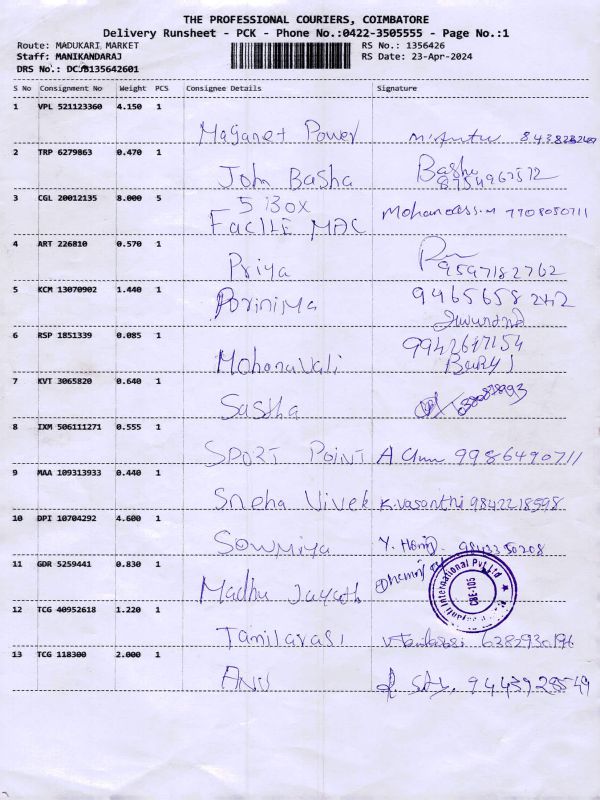 THE PROFESSIONAL COURIERS, COIMBATORE
Delivery Runsheet - PCK - Phone No.:0422-3505555 - Page No.:1
Route: MADUKARI MARKET RS No.: 1356426
Staff: MANIKANDARAJ RS Date: 23-Apr-2024
DRS No.: DCJB135642601
S No Consignment No Weight PCS Consignee Details Signature
1 VPL 521123360 4.150 1
Maganet Power
2 TRP 6279863 0.470 1
John Basha Basha
8754967572
3 CGL 20012135 8.000 5
5 Box
FACILE MAC Mohandass.M 7708050711
4 ART 226810 0.570 1
Priya 9597182762
5 KCM 13070902 1.440 1
Porinima 9465658242
6 RSP 1851339 0.085 1
Mohanavali 9942647154
7 KVT 3065820 0.640 1
Sastha
8 IXM 506111271 0.555 1
SPORT POINT 9986490711
9 MAA 109313933 0.440 1
Sneha Vivek K.Vasanthi 9842218598
10 DPI 10704292 4.600 1
Sowmiya
11 GDR 5259441 0.830 1
Madhu
International Pvt Ltd
CBE-105
12 TCG 40952618 1.220 1
Tamilarasi 6382930196
13 TCG 118300 2.000 1
ANU